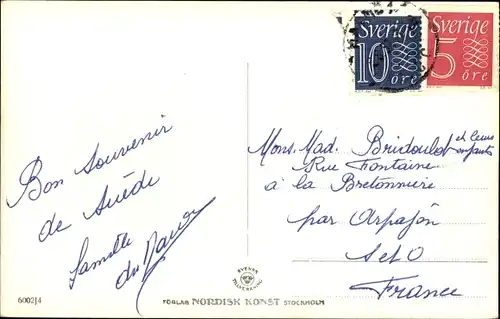 Sverige
10
öre
Sverige
5
öre
Bon Souvenir
de Suède
Famille
du
Mons. Mad. Bridoulot et leurs
enfants
Rue Fontaine
a la Bretonniere
par Arpajon
S et O
France
SVENSK
TILLVERKNING
6002/4
FÖRLAG NORDISK KONST STOCKHOLM